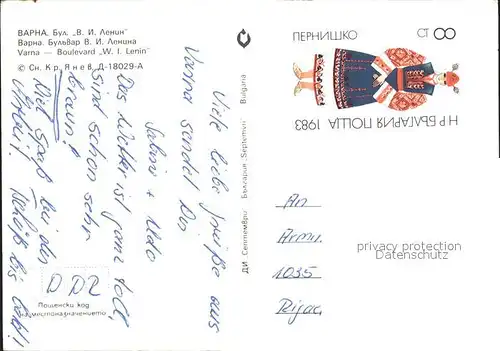 ВАРНА. Бул. „В. И. Ленин"
Варна. Бульвар В. И. Ленина
Varna — Boulevard „W. I. Lenin"
© Сн. Кр. Янев, Д-18029-А
Viele liebe Grüße aus
Varna sendet Dir
+ Udo
Das Wetter ist ganz toll,
sind schon sehr
braun!
Viel Spaß bei der
bis bald!
DDR
Пощенски код
на местоназначението
ДИ „Септември" България „Septemvri" Bulgaria
ПЕРНИШКО
8 СТ
НР БЪЛГАРИЯ ПОЩА 1983
An
1035
privacy protection
Datenschutz